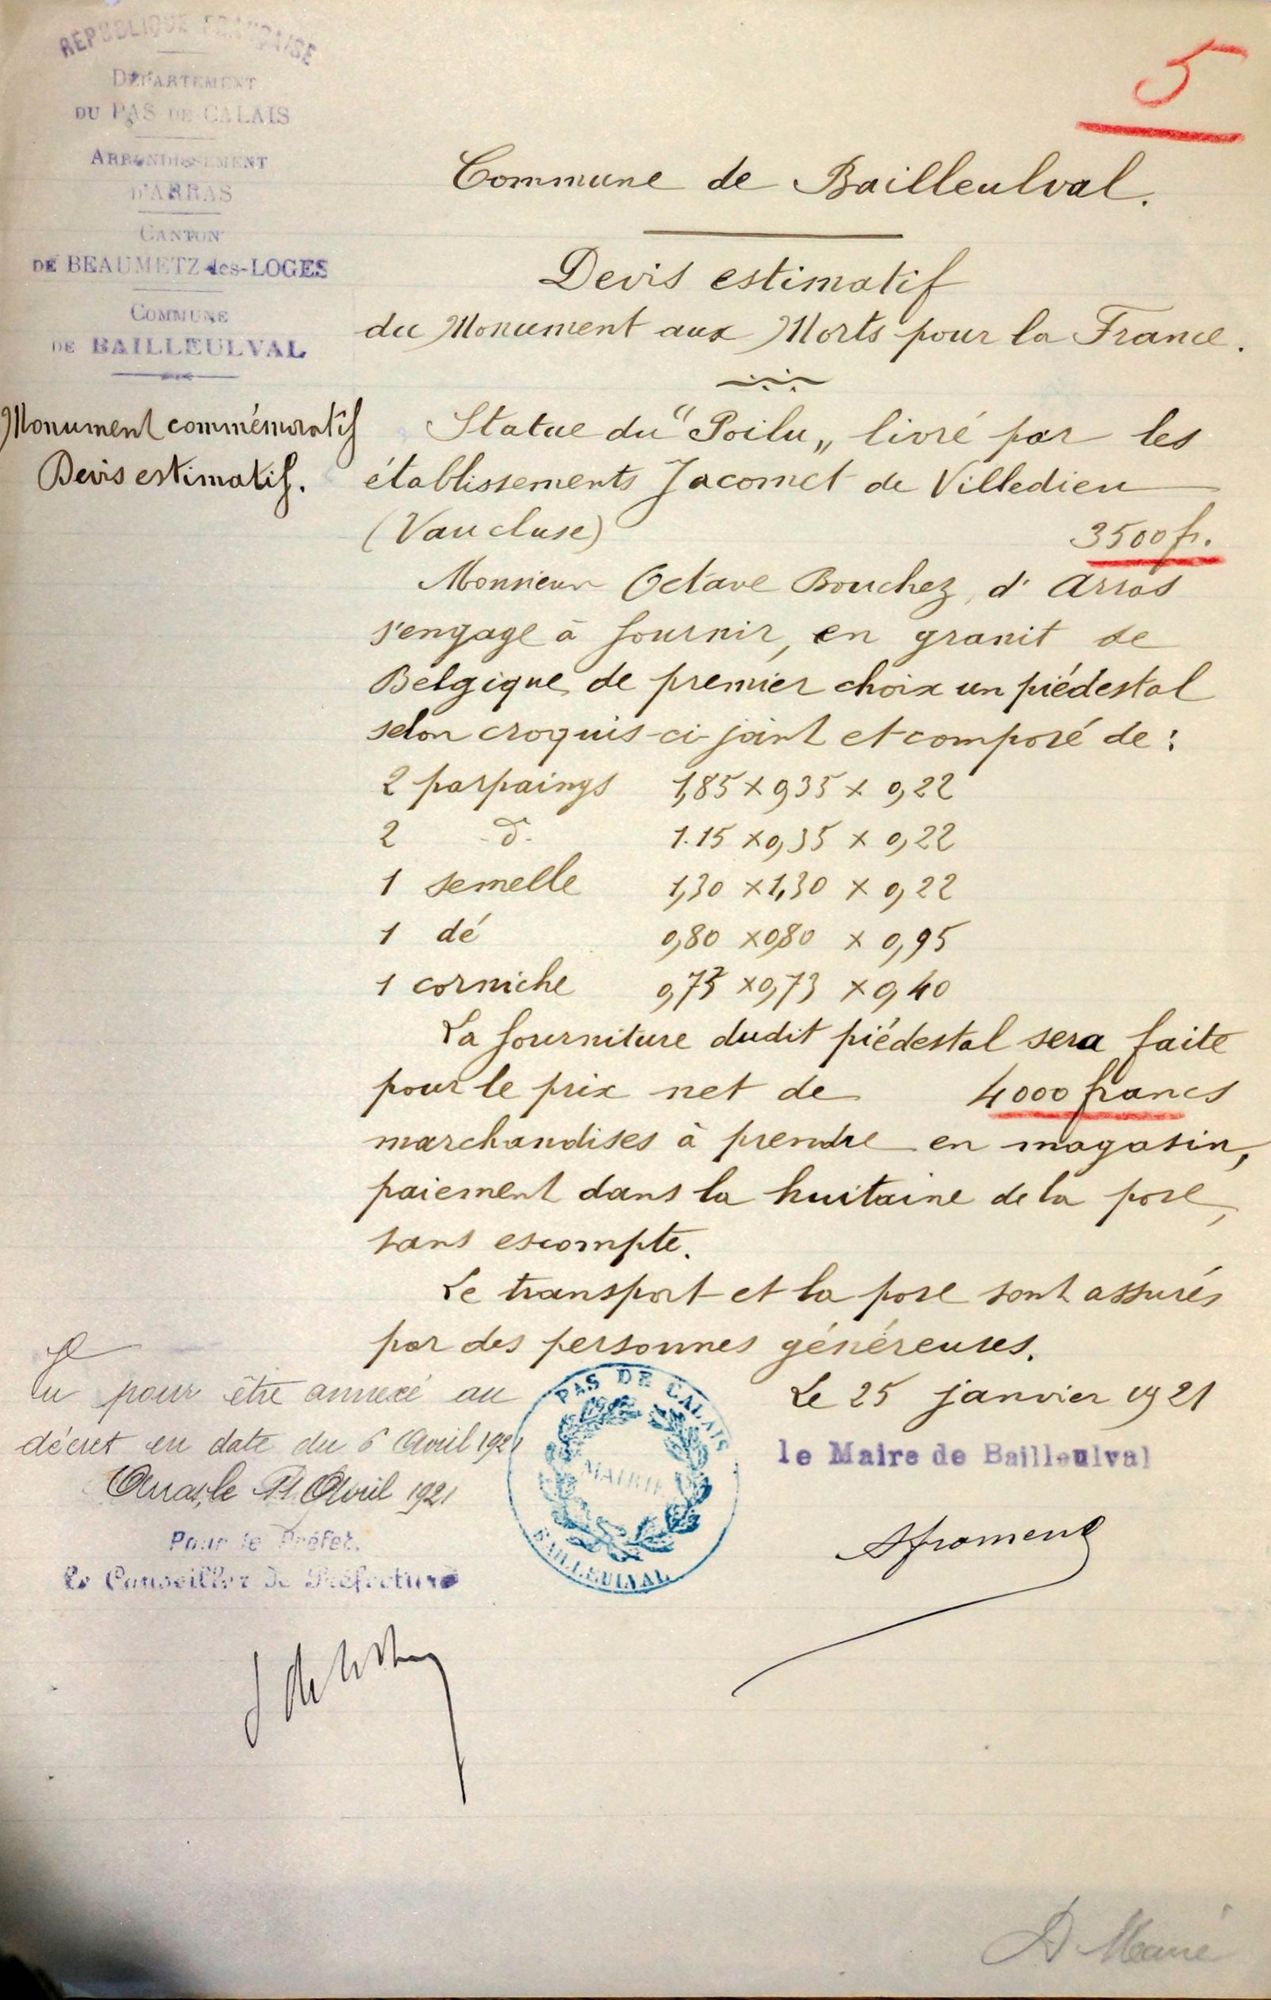 RÉPUBLIQUE FRANÇAISE
DÉPARTEMENT
DU PAS-DE-CALAIS
ARRONDISSEMENT
D'ARRAS
CANTON
DE BEAUMETZ-les-LOGES
COMMUNE
DE BAILLEULVAL
Monument commémoratif
Devis estimatif.
5
Commune de Bailleulval.
Devis estimatif
du Monument aux Morts pour la France.
Statue du "Poilu" livré par les
établissements Jacomet de Villedieu
(Vaucluse) 3500 fr.
Monsieur Octave Bouchez, d'Arras
s'engage à fournir, en granit de
Belgique de premier choix un piédestal
selon croquis-ci-joint et composé de :
2 parpaings 1,85 x 0,35 x 0,22
2 d° 1.15 x 0,35 x 0,22
1 semelle 1,30 x 1,30 x 0,22
1 dé 0,80 x 0,80 x 0,95
1 corniche 0,73 x 0,73 x 0,40
La fourniture dudit piédestal sera faite
pour le prix net de 4000 francs
marchandises à prendre en magasin,
paiement dans la huitaine de la pose,
sans escompte.
Le transport et la pose sont assurés
par des personnes généreuses.
Le 25 janvier 1921
le Maire de Bailleulval
PAS DE CALAIS
MAIRIE
BAILLEULVAL
Vu pour être annexé au
décret en date du 6 Avril 1921
Arras, le Avril 1921
Pour le Préfet,
Le Conseiller de Préfecture